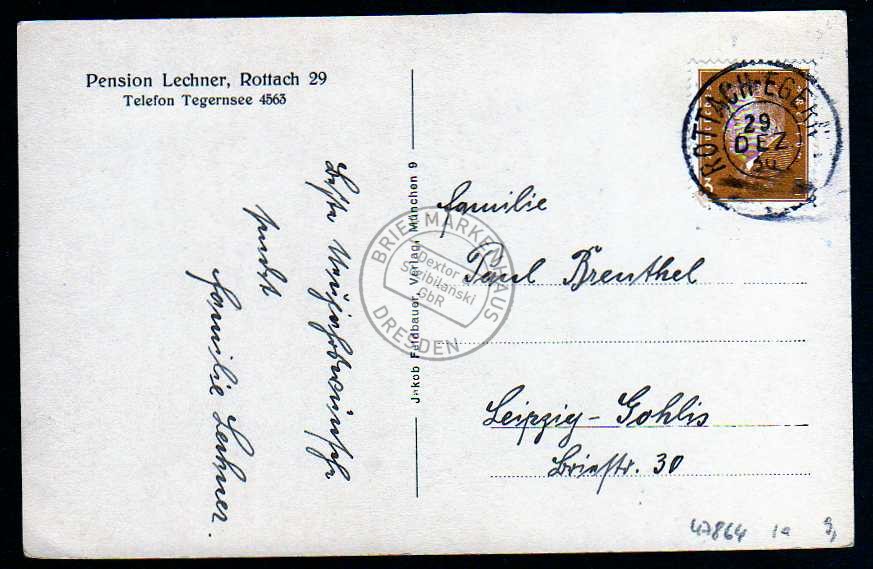 Pension Lechner, Rottach 29
Telefon Tegernsee 4563
Beste Neujahrswünsche
sendet
Familie Lechner.
Jakob Feldbauer, Verlag, München 9
ROTTACH-EGERN
29
DEZ
Familie
Paul Brenthel
Leipzig-Gohlis
Briefstr. 30
BRIEFMARKENHAUS
Dextor &
Sagibilański
GbR
DRESDEN
47864 1a